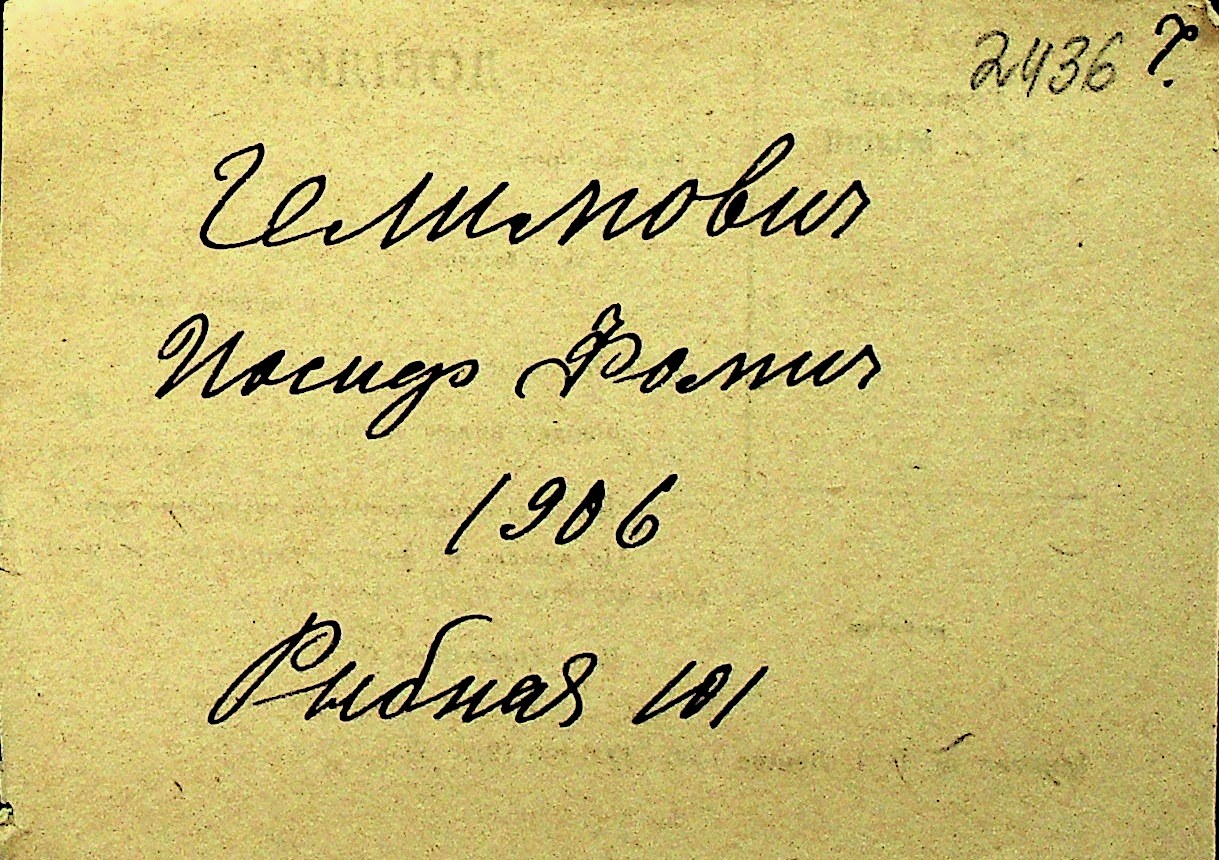 2436 г.
Гелимович
Иосиф Фомич
1906
Рыбная 101